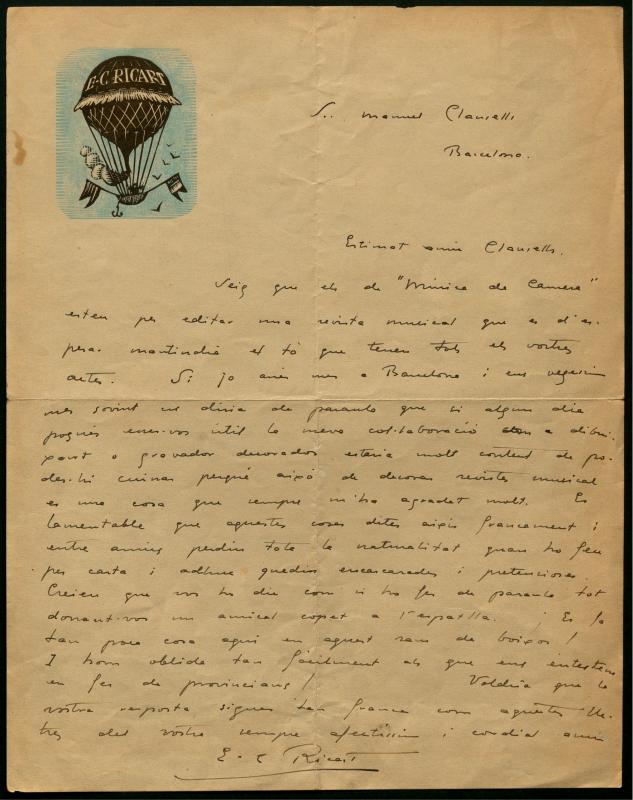 E-C RICART
Sr. Manuel Clausells
Barcelona.
Estimat amic Clausells.
Veig que els de "Música da Camera"
esteu per editar una revista musical que es d'es-
perar mantindrà el tó que tenen tots els vostres
actes. Si jo anés mes a Barcelona i ens vegessim
mes sovint us diria de paraula que si algun dia
pogués esser-vos útil la meva col·laboració com a dibui-
xant o gravador decorador estaria molt content de po-
der-hi cuinar perqué aixó de decorar revistes musicals
es una cosa que sempre m'ha agradat molt. Es
lamentable que aquestes coses dites aixis francament i
entre amics perdin tota la naturalitat quan ho feu
per carta i adhuc quedin encarcarades i pretencioses.
Creieu que vos ho dic com si ho fes de paraula tot
donant-vos un amical copet a l'espatlla. Es fa
tan poca cosa aqui en aquest ram de boixos!
I hom oblida tan fàcilment als que ens entestem
en fer de provincians! Voldria que la
vostra resposta sigues tan franca com aquestes lle-
tres del vostre sempre afectissim i cordial amic
E-C Ricart